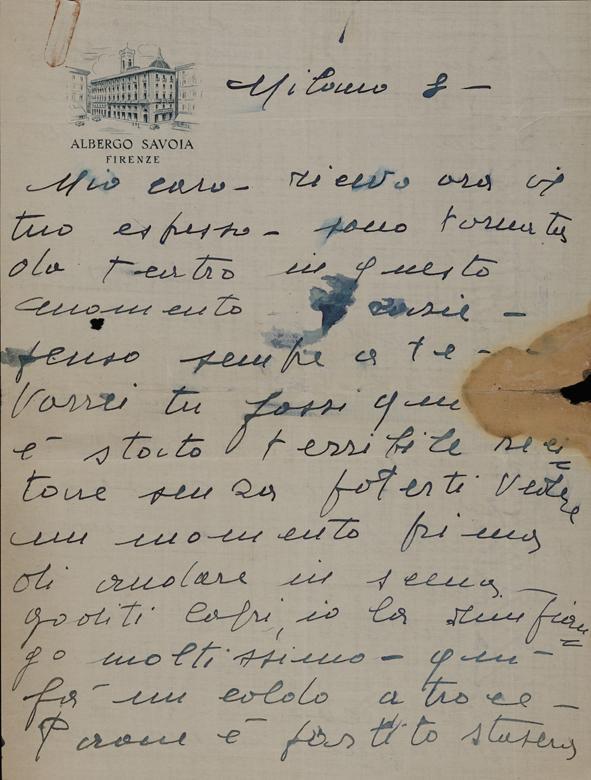 ALBERGO SAVOIA
FIRENZE
Milano 8 -
Mio caro - ricevo ora il
tuo espresso - sono tornata
da teatro in questo
momento grazie -
penso sempre a te -
Vorrei tu fossi qui
è stato terribile reci=
tare senza poterti vedere
un momento prima
di andare in scena
goditi Capri, io la rimpian=
go moltissimo - qui
fà un caldo atroce -
è partito stasera